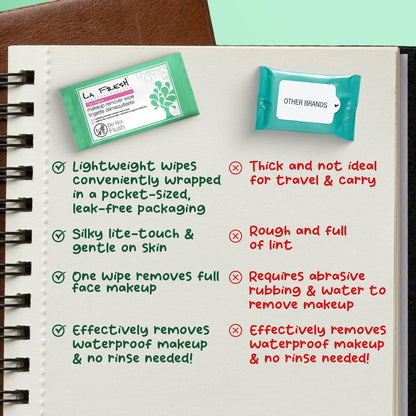 LA FRESH
makeup remover wipe
lingette démaquillante
Do Not
Flush
OTHER BRANDS
Lightweight wipes
conveniently wrapped
in a pocket-sized,
leak-free packaging
Thick and not ideal
for travel & carry
Silky lite-touch &
gentle on skin
Rough and full
of lint
One wipe removes full
face makeup
Requires abrasive
rubbing & water to
remove makeup
Effectively removes
waterproof makeup
& no rinse needed!
Effectively removes
waterproof makeup
& no rinse needed!